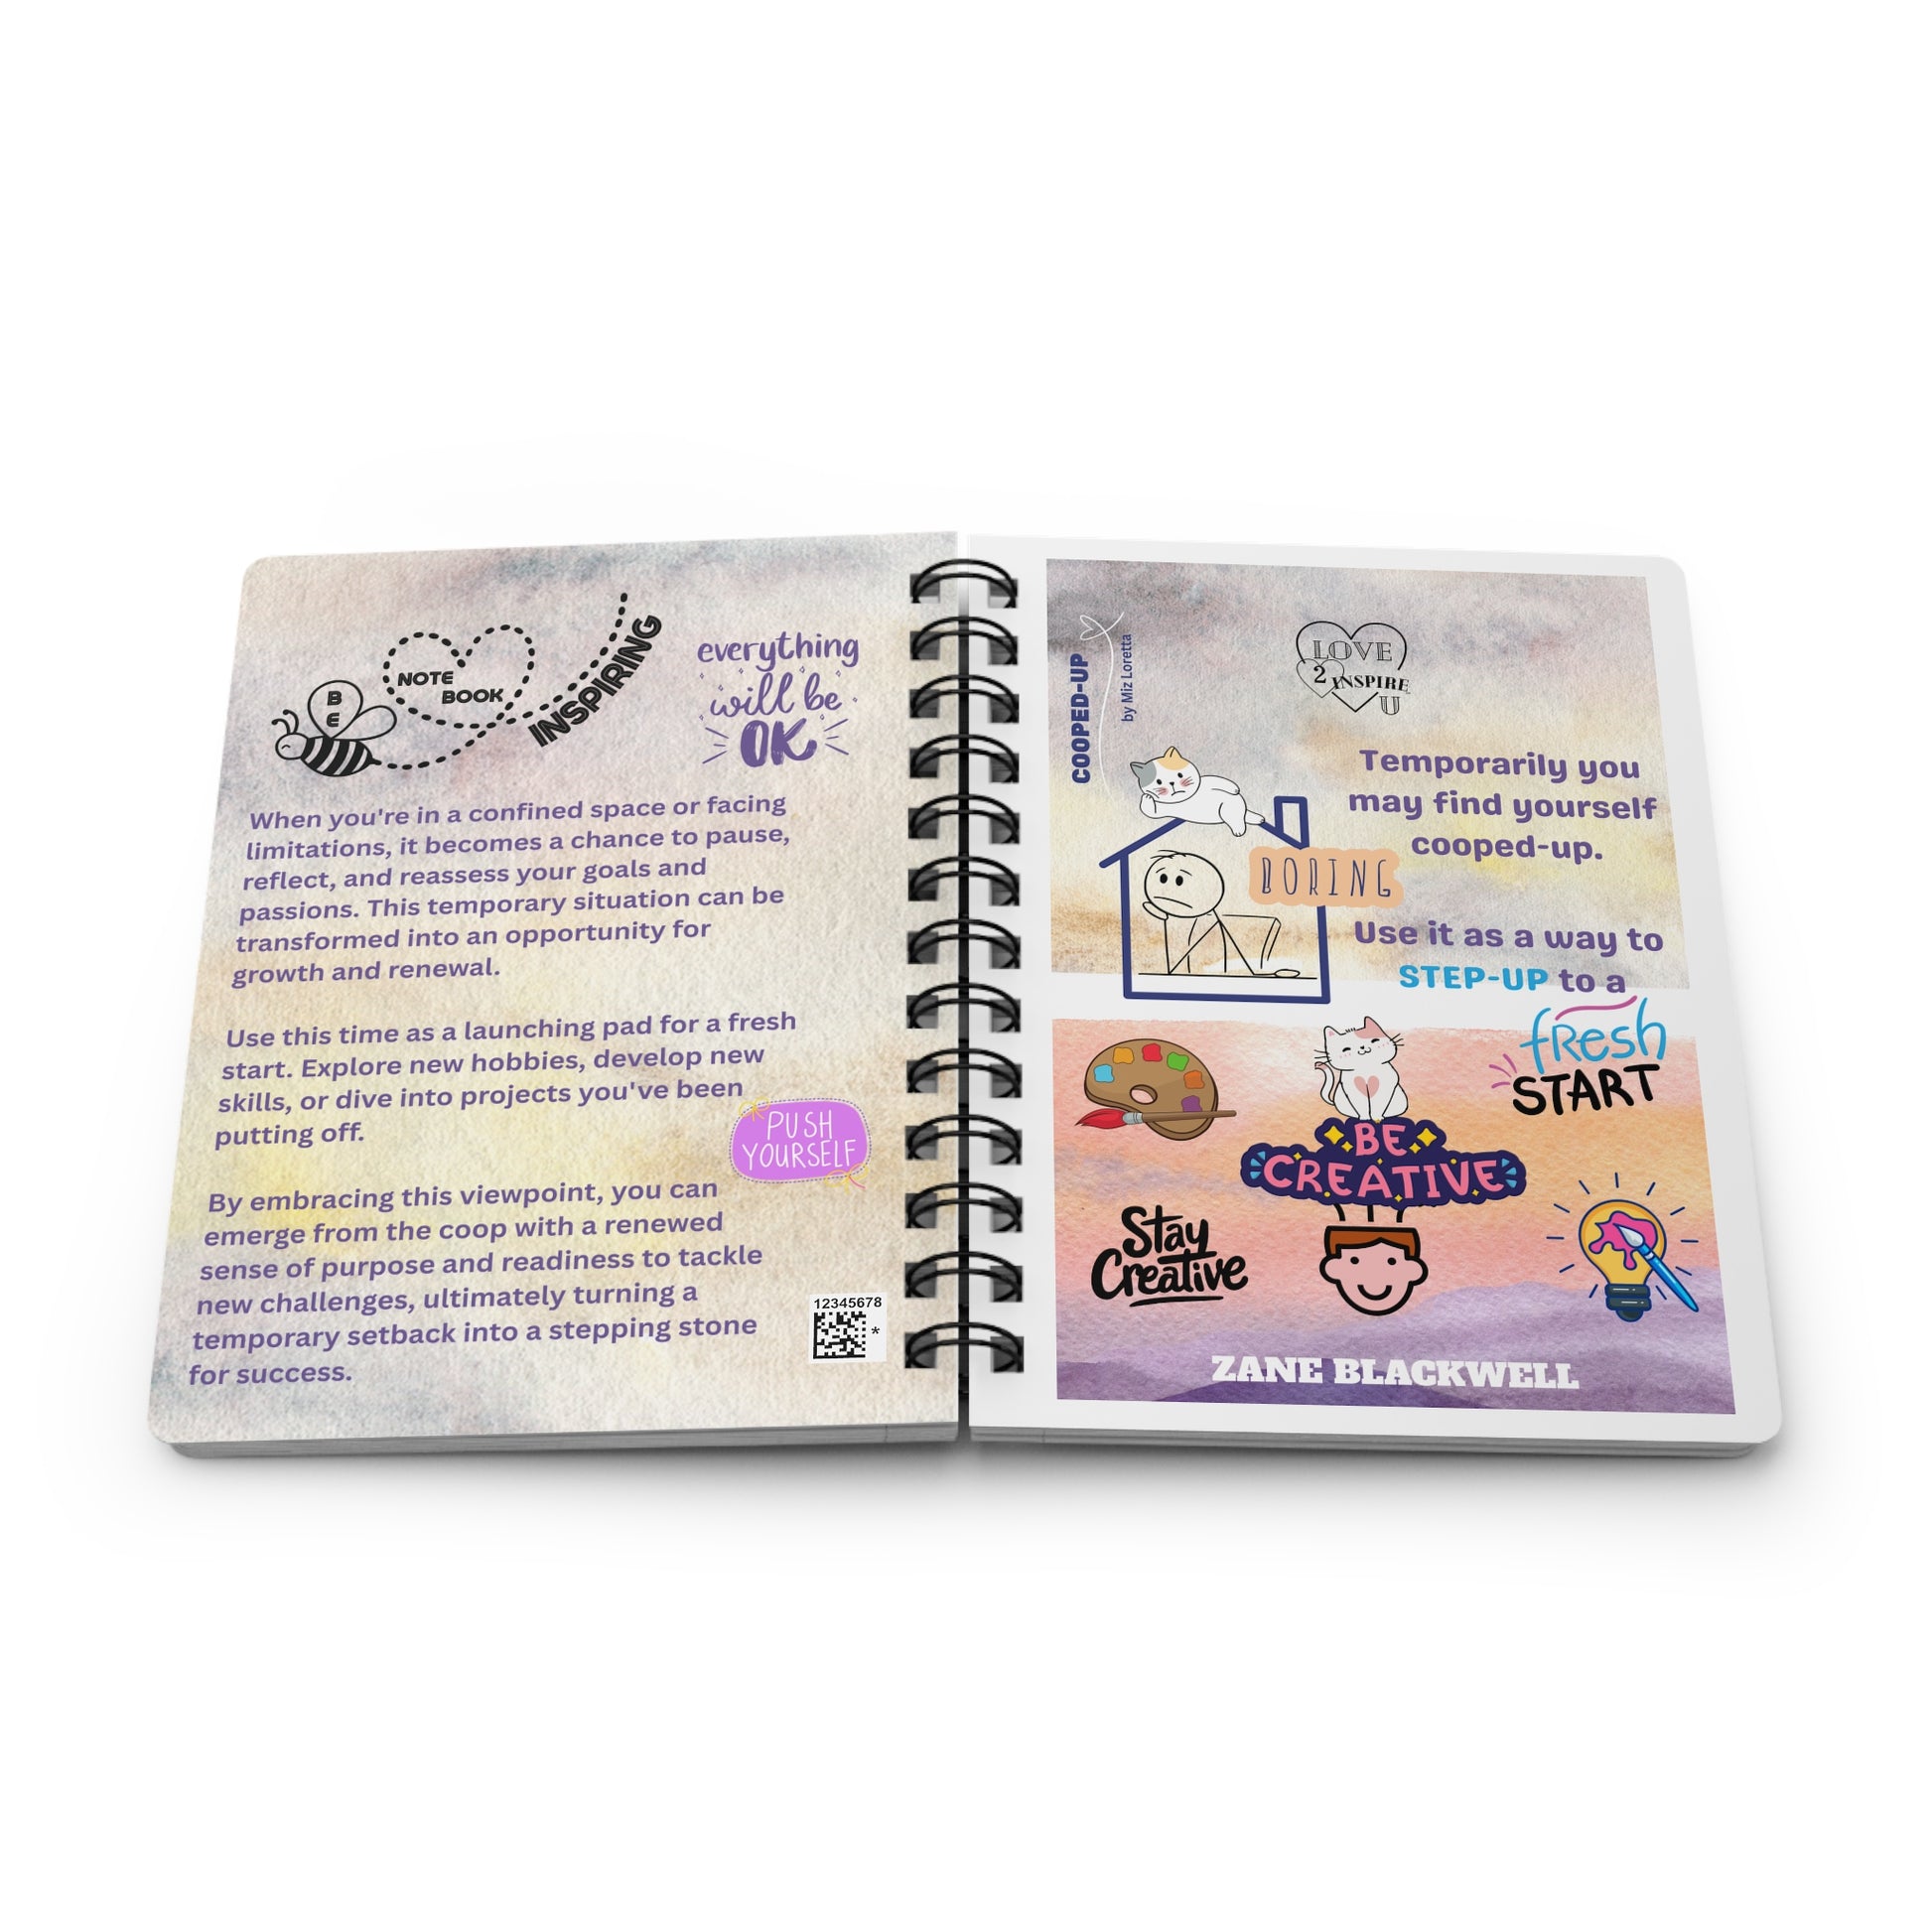 BE
NOTE
BOOK
INSPIRING
everything
will be
OK
When you're in a confined space or facing
limitations, it becomes a chance to pause,
reflect, and reassess your goals and
passions. This temporary situation can be
transformed into an opportunity for
growth and renewal.
Use this time as a launching pad for a fresh
start. Explore new hobbies, develop new
skills, or dive into projects you've been
putting off.
PUSH
YOURSELF
By embracing this viewpoint, you can
emerge from the coop with a renewed
sense of purpose and readiness to tackle
new challenges, ultimately turning a
temporary setback into a stepping stone
for success.
12345678
*
COOPED-UP
by Miz Loretta
LOVE
2 INSPIRE
U
Temporarily you
may find yourself
cooped-up.
BORING
Use it as a way to
STEP-UP to a
fResh
START
BE
CREATIVE
Stay
Creative
ZANE BLACKWELL